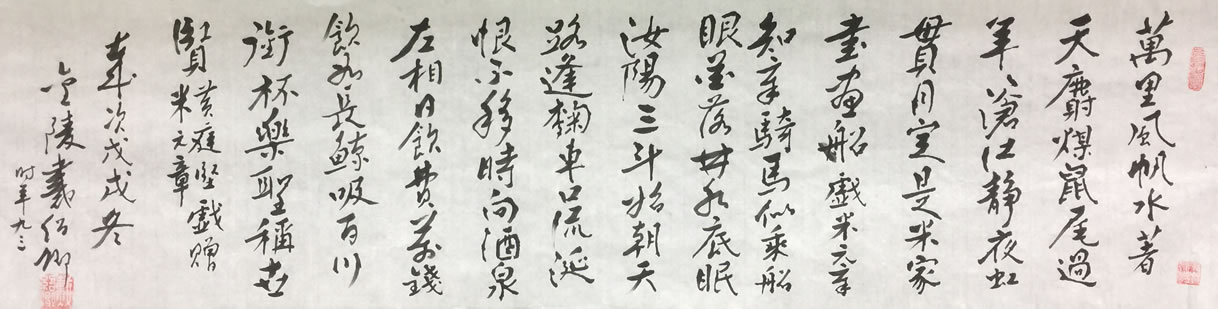 萬里風帆水著
天麝煤鼠尾過
年滄江靜夜虹
貫月定是米家
書畫船戲米元章
知章騎馬似乘船
眼花落井水底眠
汝陽三斗始朝天
路逢麴車口流涎
恨不移時向酒泉
左相日飲費萬錢
飲如長鯨吸百川
銜杯樂聖稱世
賢
黄庭堅戲贈
米元章
歲次戊戌冬
金陵
时年九三